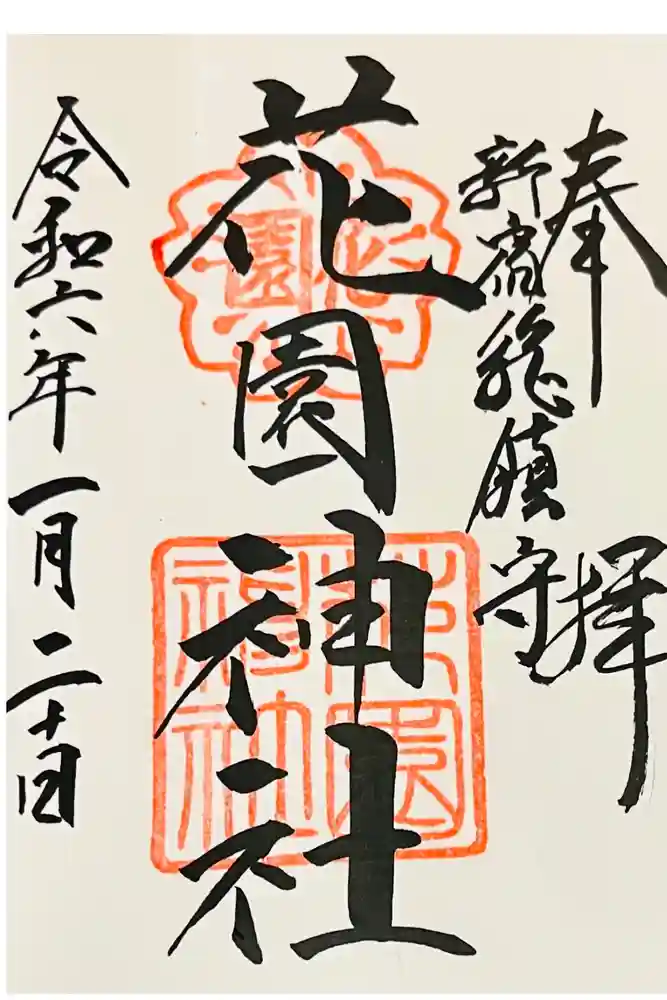 奉拝
新宿総鎮守
花園神社
令和六年一月二十日
花園神社